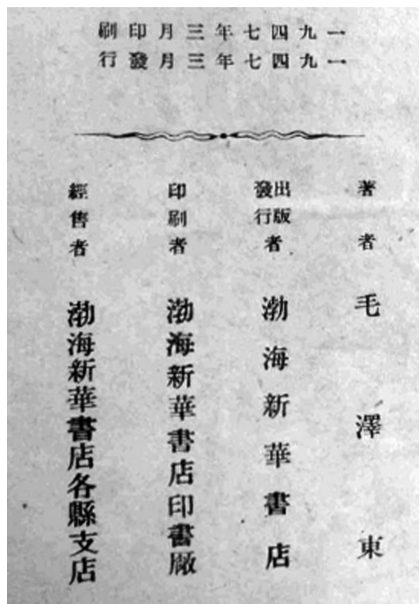 一九四七年三月印刷
一九四七年三月發行
著者 毛澤東
出版發行者 渤海新華書店
印刷者 渤海新華書店印書厰
經售者 渤海新華書店各縣支店